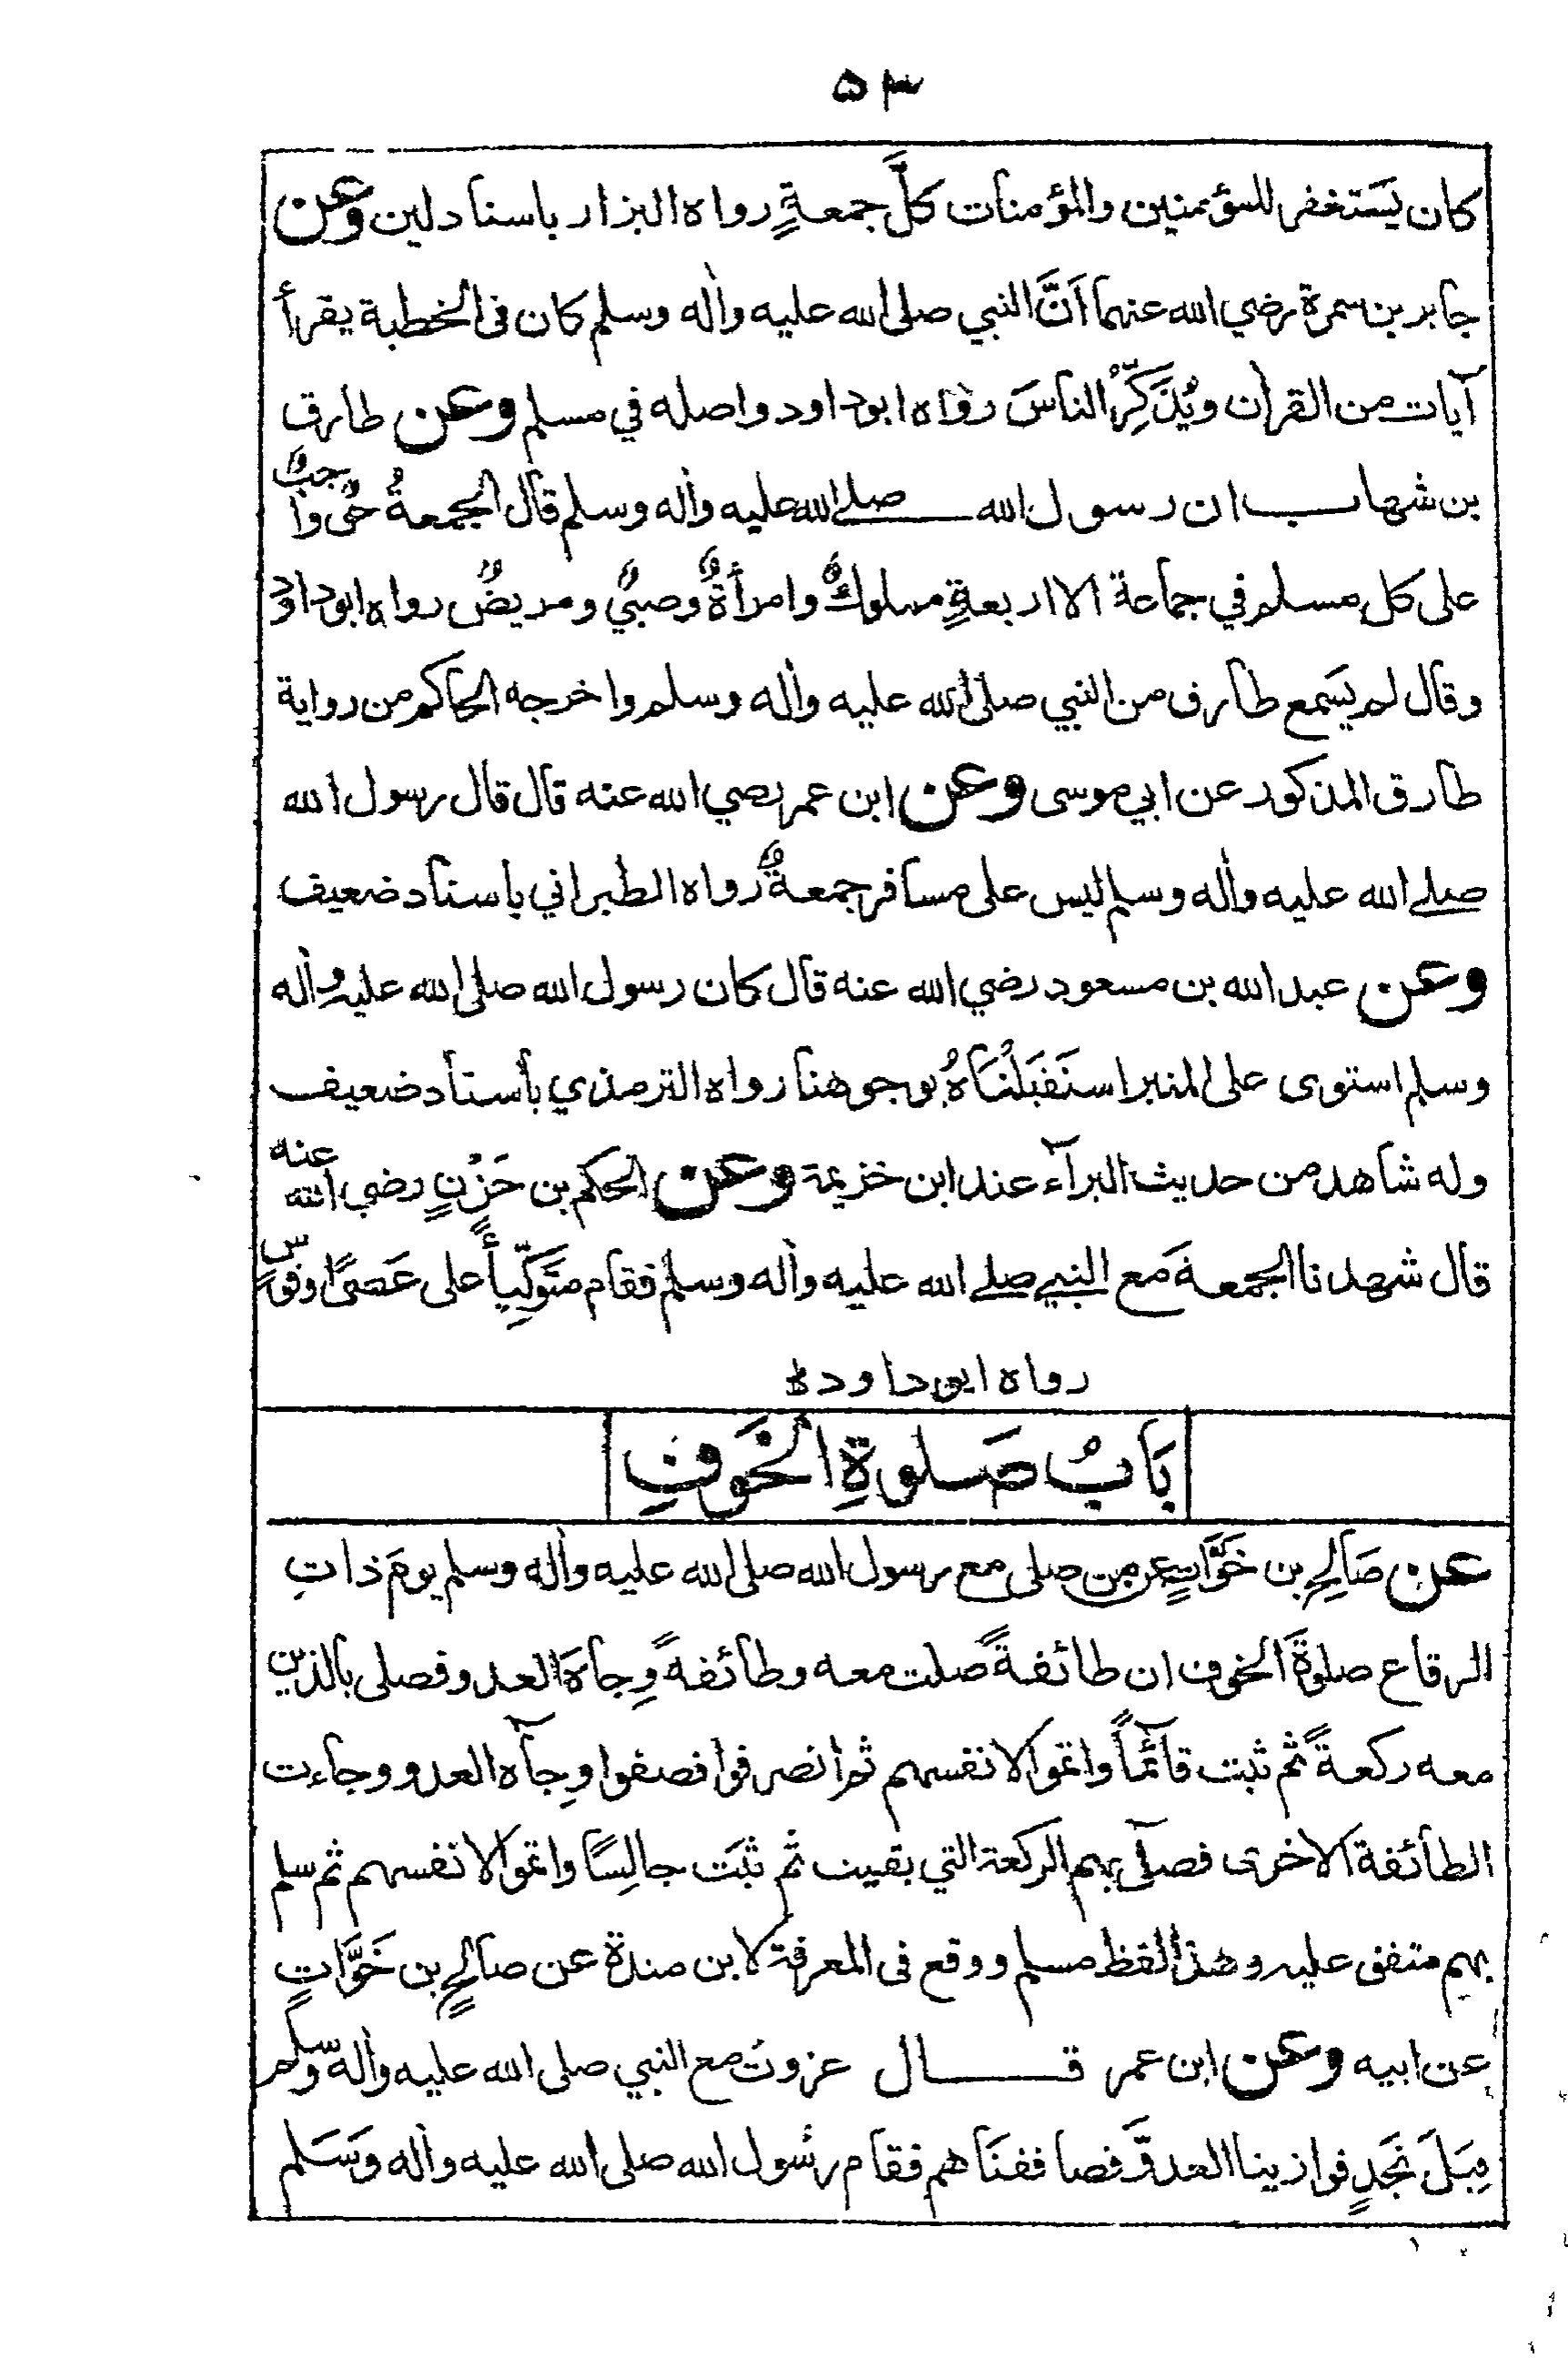 ۵۳
كان يَستغفر للمؤمنين والمؤمنات كلَّ جمعةٍ رواه البزار باسناد لين وعن
جابر بن سمرة رضي الله عنهما اَنَّ النبي صلى الله عليه واٰله وسلم كان فى الخطبة يقرأ
آيات من القراٰن ويُذَكِّرُ الناسَ رواه ابوداود واصله في مسلم وعن طارق
بن شهاب ان رسول الله صلے الله عليه واٰله وسلم قال الجمعةُ حقٌ واجبٌ
على كل مسلم في جماعة الا اربعةٍ مملوكٌ وامرأةٌ وصبيٌ ومريضٌ رواه ابوداود
وقال لم يَسمع طارق من النبي صلى الله عليه واٰله وسلم واخرجه الحاكم من رواية
طارق المذكور عن ابي موسى وعن ابن عمر رضي الله عنه قال قال رسول الله
صلے الله عليه واٰله وسلم ليس على مسافر جمعةٌ رواه الطبراني باسناد ضعيف
وعن عبد الله بن مسعود رضي الله عنه قال كان رسول الله صلى الله عليه واٰله
وسلم استوى على المنبر استَقبَلْنَاهُ بوجوهنا رواه الترمذي باسناد ضعيف
وله شاهد من حديث البرآء عند ابن خزيمة وعن الحكم بن حَزْنٍ رضي الله عنه
قال شهدنا الجمعة مَع النبي صلے الله عليه واٰله وسلم فقام متَوَكِّياً على عَصًى او قوسٍ
رواه ابوداود
بَابُ صَلوةِ الخَوفِ
عن صَالحِ بن خَوَّاتٍ عمن صلى مع رسول الله صلى الله عليه واٰله وسلم يومَ ذاتِ
الرقاع صلوةَ الخوف ان طائفةً صلت معه وطائفةً وِجاهَ العدو فصلى بالذين
معه ركعةً ثم ثبت قآئماً واتموا لانفسهم ثم انصرفوا فصفوا وِجآه العدو وجاءت
الطائفة الاخرى فصلّى بهم الركعة التي بقيت ثم ثبَت جالِسًا واتموا لانفسهم ثم سلم
بهم متفق عليه وهذا لفظ مسلم ووقع فى المعرفة لابن مندة عن صالحِ بن خَوَّاتٍ
عن ابيه وعن ابن عمر قال غزوت مع النبي صلى الله عليه واٰله وسلم
قِبَلَ نَجَدٍ فوازينا العدوَّ فصاففنَاهم فقام رسُول الله صلى الله عليه واٰله وَسَلم